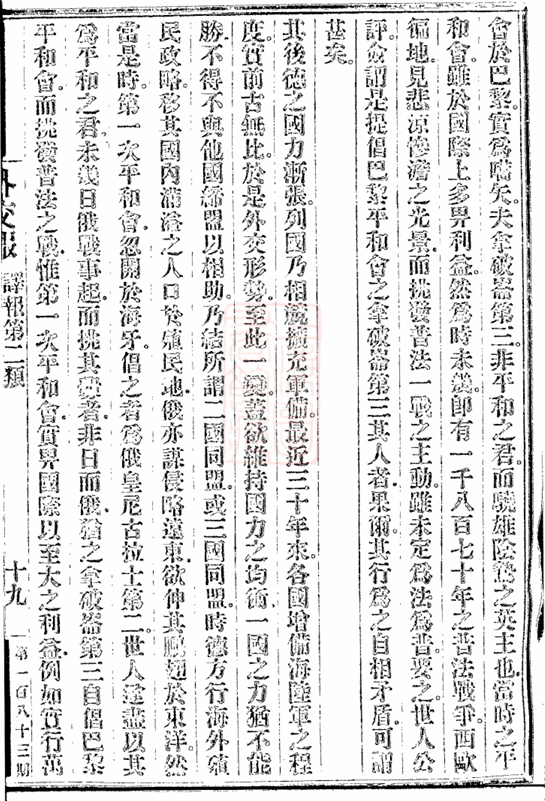 會於巴黎。實爲嚆矢。夫拿破崙第三。非平和之君。而驍雄陰鷙之英主也。當時之平
和會。雖於國際上多畀利益。然爲時未幾。卽有一千八百七十年之普法戰爭。西歐
徧地。見悲涼慘澹之光景。而挑發普法一戰之主動。雖未定爲法爲普。要之。世人公
評。僉謂是提倡巴黎平和會之拿破崙第三其人者。果爾。其行爲之自相矛盾。可謂
甚矣。
其後德之國力漸張。列國乃相競擴充軍備。最近三十年來。各國增備海陸軍之程
度。實前古無比。於是外交形勢。至此一變。蓋欲維持國力之均衡。一國之力。猶不能
勝。不得不與他國締盟以相助。乃結所謂二國同盟。或三國同盟。時德方行海外殖
民政略。移其國內滿溢之人口於殖民地。俄亦謀侵略遠東。欲伸其 翅於東洋。然
當是時。第一次平和會。忽開於海牙。倡之者。爲俄皇尼古拉士第二。世人遂盡以其
爲平和之君。未幾日俄戰事起。而挑其釁者。非日而俄。猶之拿破崙第三。自倡巴黎
平和會。而挑發普法之戰。惟第一次平和會。實畀國際以至大之利益。例如實行萬
外交報 譯報第二類 十九 第一百八十三期